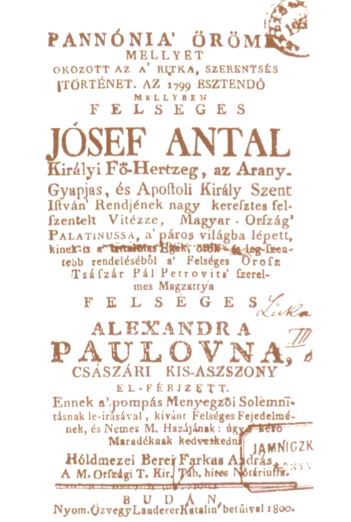 PANNÓNIA' ÖRÖME
MELLYET
OKOZOTT AZ A' RITKA, SZERENTSÉS
TÖRTÉNET. AZ 1799 ESZTENDŐ
MELLYBEN
FELSÉGES
JÓSEF ANTAL
Királyi Fő-Hertzeg, az Arany-
Gyapjas, és Apostoli Király Szent
István' Rendjének nagy keresztes fel-
szentelt Vitézze, Magyar-Ország'
PALATINUSSA, a' páros világba lépett,
kinek-is a' Egek, örök- és leg-szen-
tebb rendeléséből a' Felséges Orosz
Tsászár Pál Petrovits' szerel-
mes Magzattya
FELSÉGES
ALEXANDRA
PAULOVNA,
CSÁSZÁRI KIS-ASZSZONY
EL-FÉRJZETT.
Ennek a' pompás Menyegzői Solemni-
tásnak le-írásával, kívánt Felséges Fejedelmé-
nek, és Nemes M. Hazájának: úgy a' késő
Maradéknak kedveskedni
Hóldmezei Berei Farkas András,
A M. Országi T. Kir. Táb. hites Nótáriussa.
BUDÁN,
Nyom. Özvegy Landerer Katalin' betűivel 1800.
Luka
III
JAMNICZK
KÖNYV